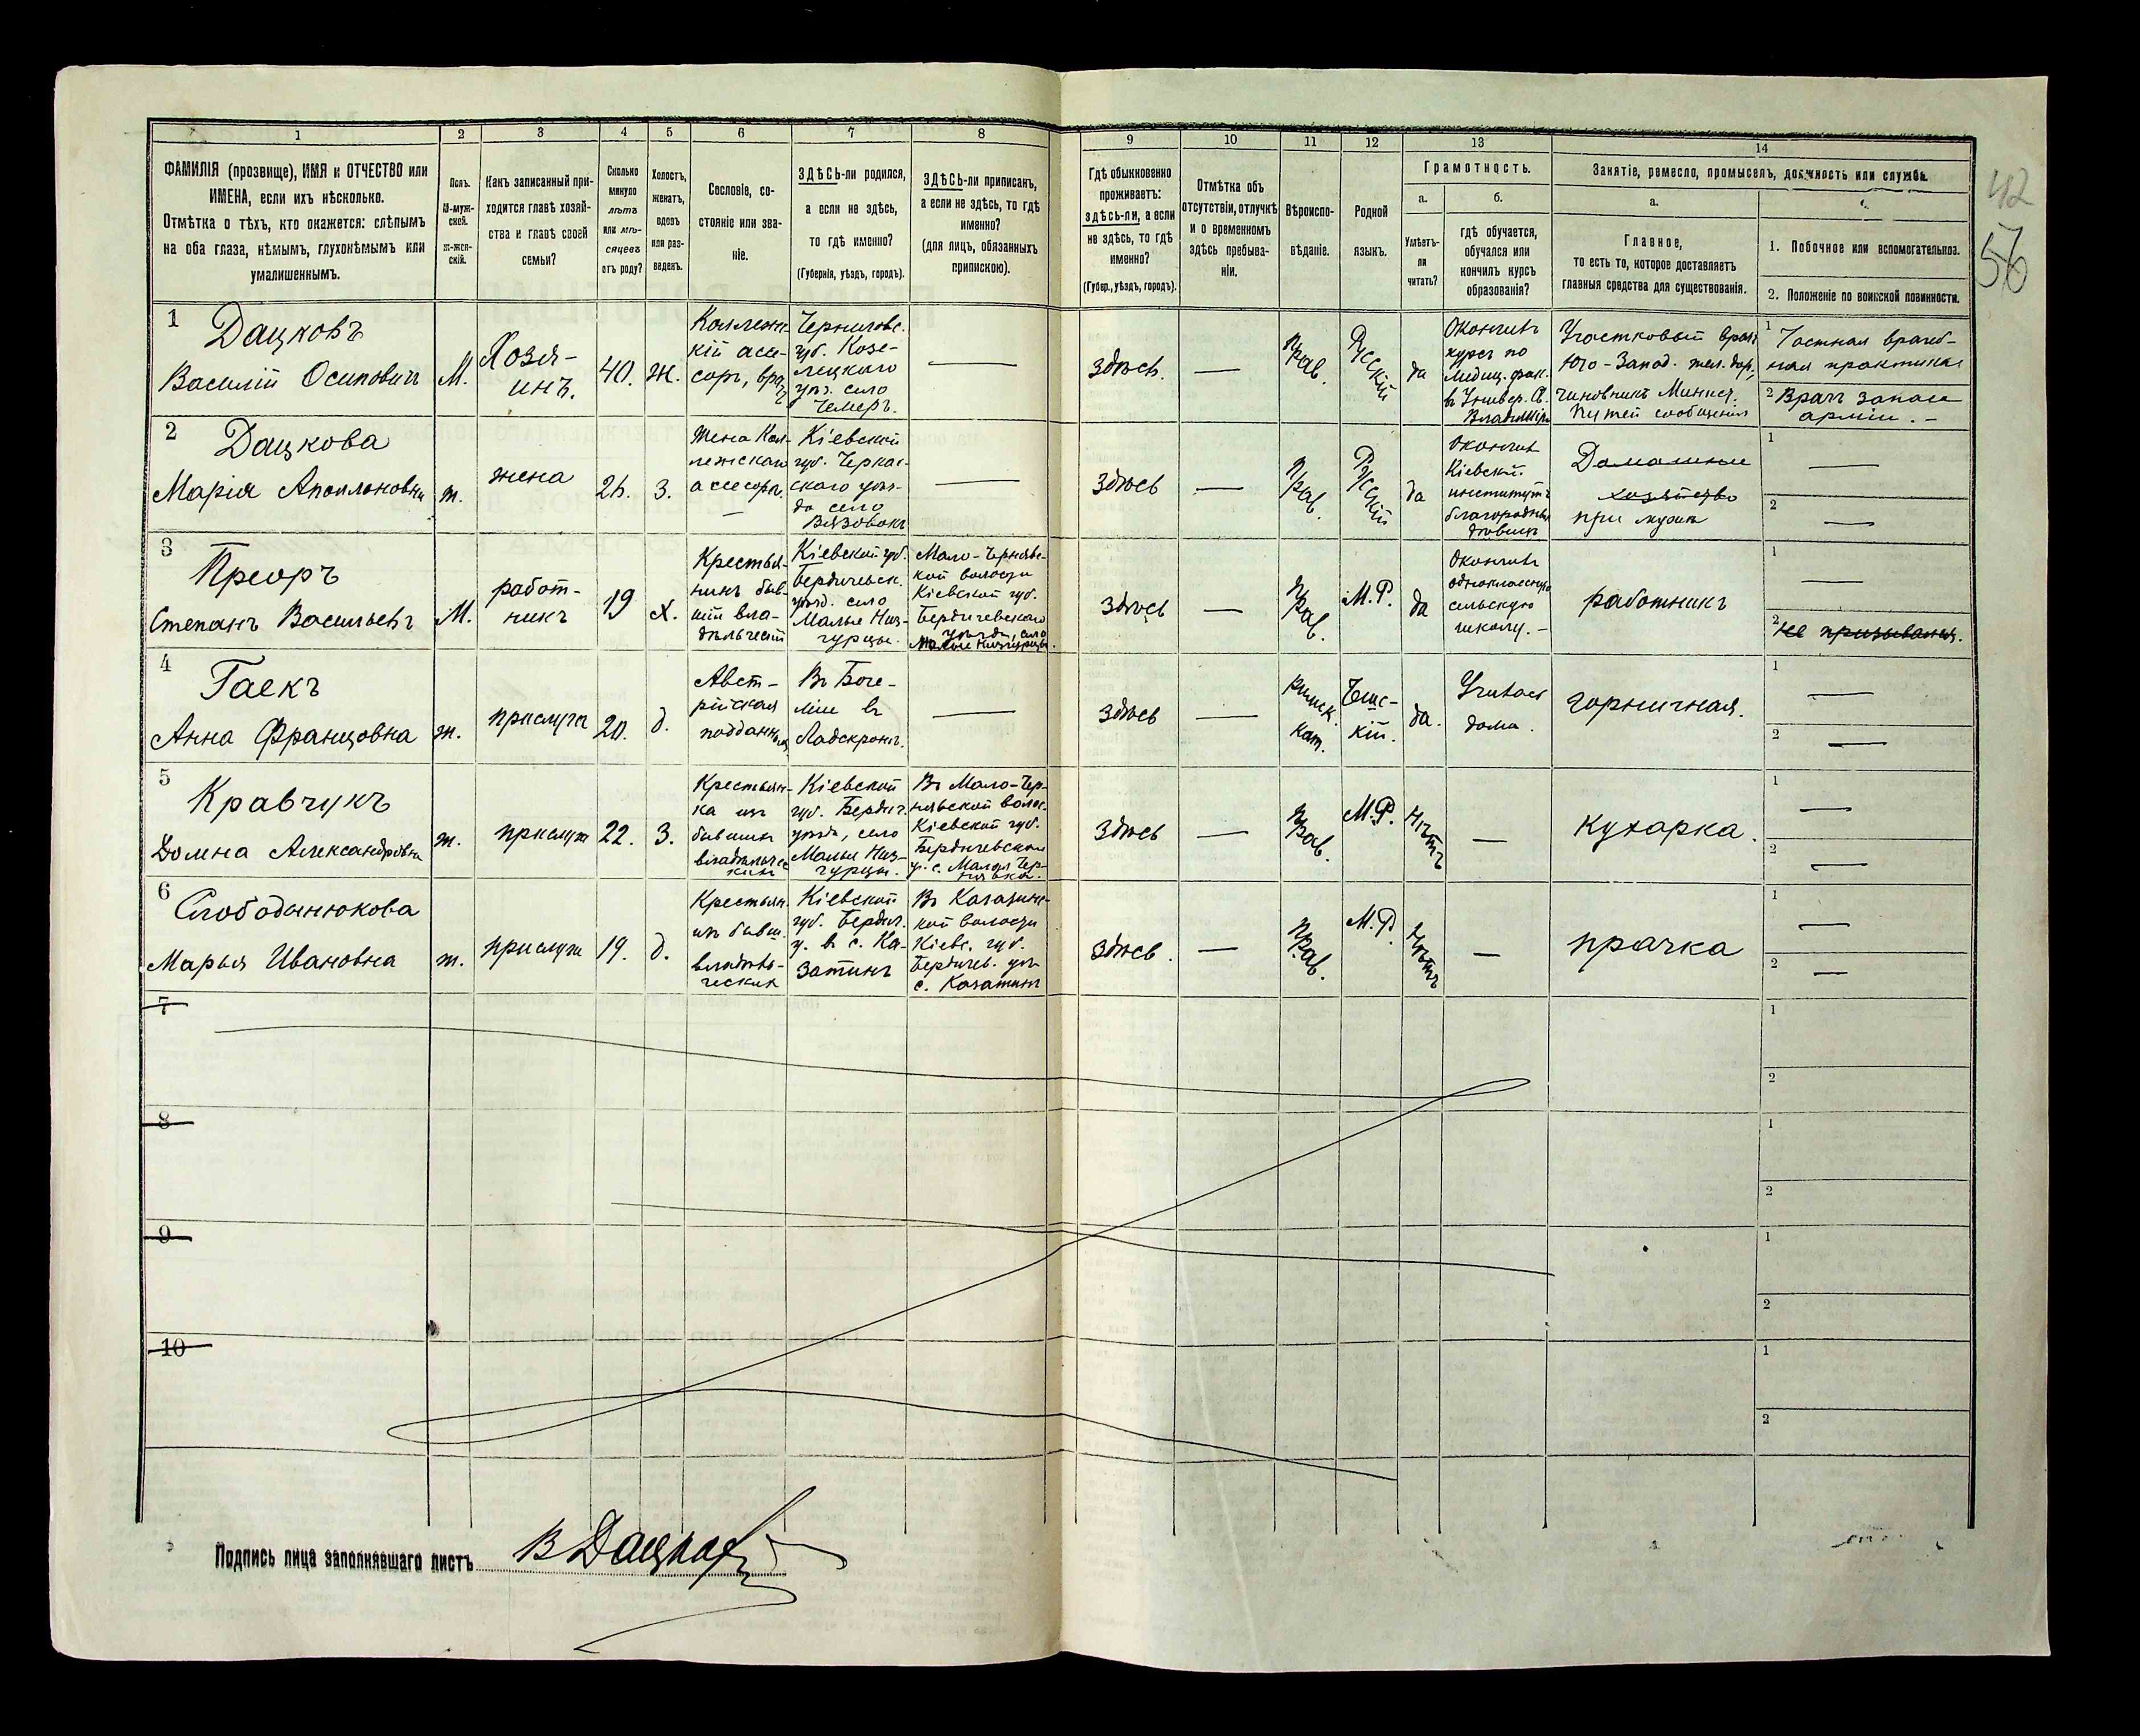 1 2 3 4 5 6 7 8 9 10 11 12 13 14
ФАМИЛІЯ (прозвище), ИМЯ и ОТЧЕСТВО или
ИМЕНА, если ихъ нѣсколько.
Отмѣтка о тѣхъ, кто окажется: слѣпымъ
на оба глаза, нѣмымъ, глухонѣмымъ или
умалишеннымъ.
Полъ.
М-муж-
ской.
ж-жен-
скій.
Какъ записанный при-
ходится главѣ хозяй-
ства и главѣ своей
семьи?
Сколько
минуло
лѣтъ
или мѣ-
сяцевъ
отъ роду?
Холостъ,
женатъ,
вдовъ
или раз-
веденъ.
Сословіе, со-
стояніе или зва-
ніе.
ЗДѢСЬ-ли родился,
а если не здѣсь,
то гдѣ именно?
(Губернія, уѣздъ, городъ).
ЗДѢСЬ-ли приписанъ,
а если не здѣсь, то гдѣ
именно?
(для лицъ, обязанныхъ
припискою).
Гдѣ обыкновенно
проживаетъ:
здѣсь-ли, а если
не здѣсь, то гдѣ
именно?
(Губер., уѣздъ, городъ).
Отмѣтка объ
отсутствіи, отлучкѣ
и о временномъ
здѣсь пребыва-
ніи.
Вѣроиспо-
вѣданіе.
Родной
языкъ.
Грамотность.
а.
Умѣетъ-
ли
читать?
б.
гдѣ обучается,
обучался или
кончилъ курсъ
образованія?
Занятіе, ремесло, промыселъ, должность или служба.
а.
Главное,
то есть то, которое доставляетъ
главныя средства для существованія.
1. Побочное или вспомогательное.
2. Положеніе по воинской повинности.
42
56
1
Дацковъ
Василій Осиповичъ
М.
Хозя-
инъ.
40.
Ж.
Коллежс-
кій асес-
соръ, врачъ
Черниговс.
губ. Козе-
лецкаго
уѣз. село
Чемеръ.
—
здѣсь.
—
Прав.
Русскій
да
Окончилъ
курсъ по
Медиц. фак.
въ Универ. Св.
Владиміра
Участковый врачъ
Юго-Запад. жел. дор.,
чиновникъ Минист.
Путей сообщенія
1 Частная врачеб-
ная практика
2 Врачъ запаса
арміи. —
2
Дацкова
Марія Аполлоновна
ж.
жена
26.
З.
Жена Кол-
лежскаго
асессора.
Кіевской
губ. Черкас-
скаго уѣз-
да село
Вязовокъ
—
здѣсь
—
Прав.
Русскій
да
Окончила
Кіевскій
институтъ
благородныхъ
дѣвицъ
Домашнее
хозяйство
при мужѣ
1 —
2 —
3
Преоръ
Степанъ Васильевъ
М.
работ-
никъ
19
Х.
Крестья-
нинъ быв-
шій вла-
дѣльческій
Кіевской губ.
Бердичевск.
уѣзд. село
Малые Низ-
гурцы.
Мало-Чернявс-
кой волости
Кіевской губ.
Бердичевскаго
уѣзда, село
Малые Низгурцы.
здѣсь
—
Прав.
М.Р.
да
Окончилъ
одноклассную
сельскую
школу. —
работникъ
1 —
2 Не призывался.
4
Гаекъ
Анна Францовна
ж.
прислуга
20.
д.
Авст-
рійская
подданная
Въ Боге-
міи въ
Ладскронѣ.
—
здѣсь
—
Римск.
Кат.
Чешс-
кій.
да.
Училась
дома.
горничная.
1 —
2 —
5
Кравчукъ
Домна Александровна
ж.
прислуга
22.
З.
Крестьян-
ка изъ
бывшихъ
владѣльчес-
кихъ
Кіевской
губ. Бердич.
уѣзда, село
Малые Низ-
гурцы.
Въ Мало-Чер-
нявской волос.
Кіевской губ.
Бердичевскаго
у. с. Малая Чер-
нявка.
здѣсь
—
Прав.
М.Р.
Нѣтъ
—
кухарка.
1 —
2 —
6
Слободянюкова
Марья Ивановна
ж.
прислуга
19.
д.
Крестьян.
изъ бывш.
владѣль-
ческихъ
Кіевской
губ. Бердич.
у. въ с. Ка-
затинъ
Въ Казатинс-
кой волости
Кіевс. губ.
Бердичев. уѣз.
с. Казатинъ
здѣсь.
—
Прав.
М.Р.
Нѣтъ
—
прачка
1 —
2 —
7
1
2
8
1
2
9
1
2
10
1
2
Подпись лица заполнявшаго листъ В Дацковъ